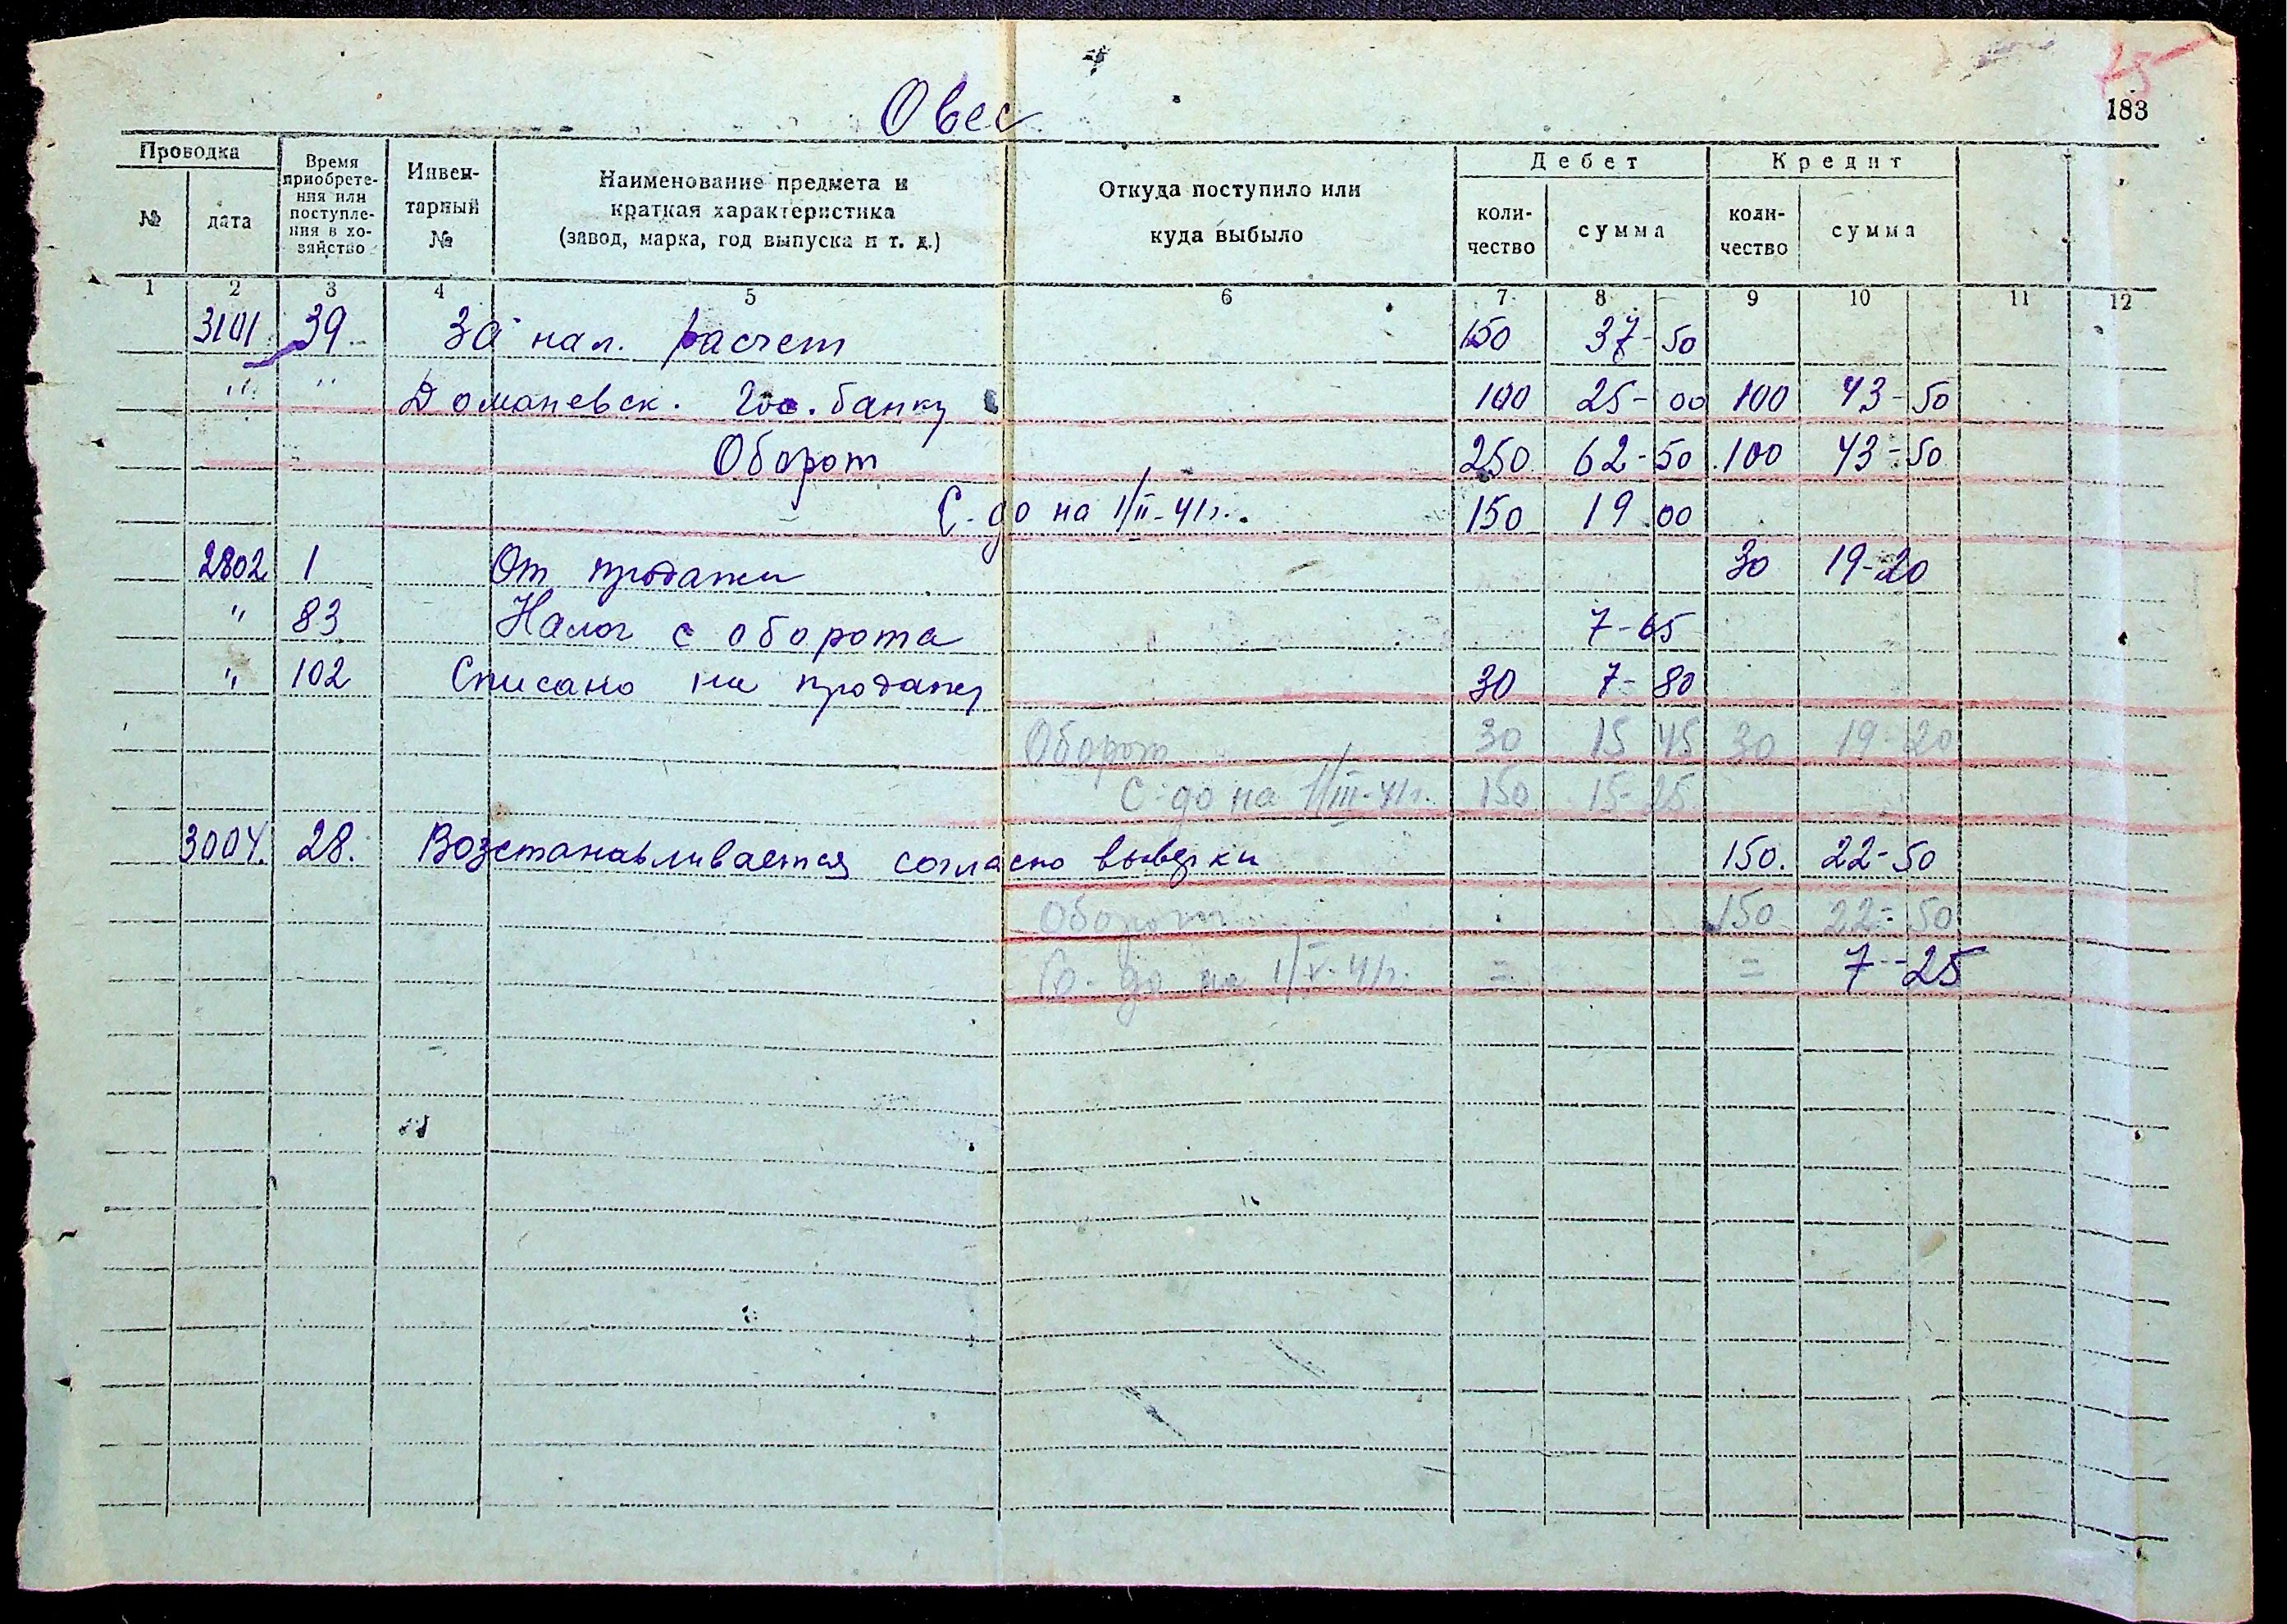 75
183
Овес
Проводка
№
дата
Время приобрете-
ния или
поступле-
ния в хо-
зяйство
Инвен-
тарный
№
Наименование предмета и
краткая характеристика
(завод, марка, год выпуска и т. д.)
Откуда поступило или
куда выбыло
Дебет
коли-
чество
сумма
Кредит
коли-
чество
сумма
1 2 3 4 5 6 7 8 9 10 11 12
3101 39. За нал. расчет 150 37-50
" " Доманевск. Гос. банку 100 25-00 100 43-50
Оборот 250 62-50 100 43-50
С-до на 1/II-41г. 150 19 00
2802 1 От продажи 30 19-20
" 83 Налог с оборота 7-65
" 102 Списано на продажу 30 7-80
Оборот 30 15 45 30 19-20
С-до на 1/III-41г. 150 15-25
3004. 28. Возстанавливается согласно выверки 150. 22-50
Оборот 150 22-50
Со-до на 1/V-41г. = = 7-25